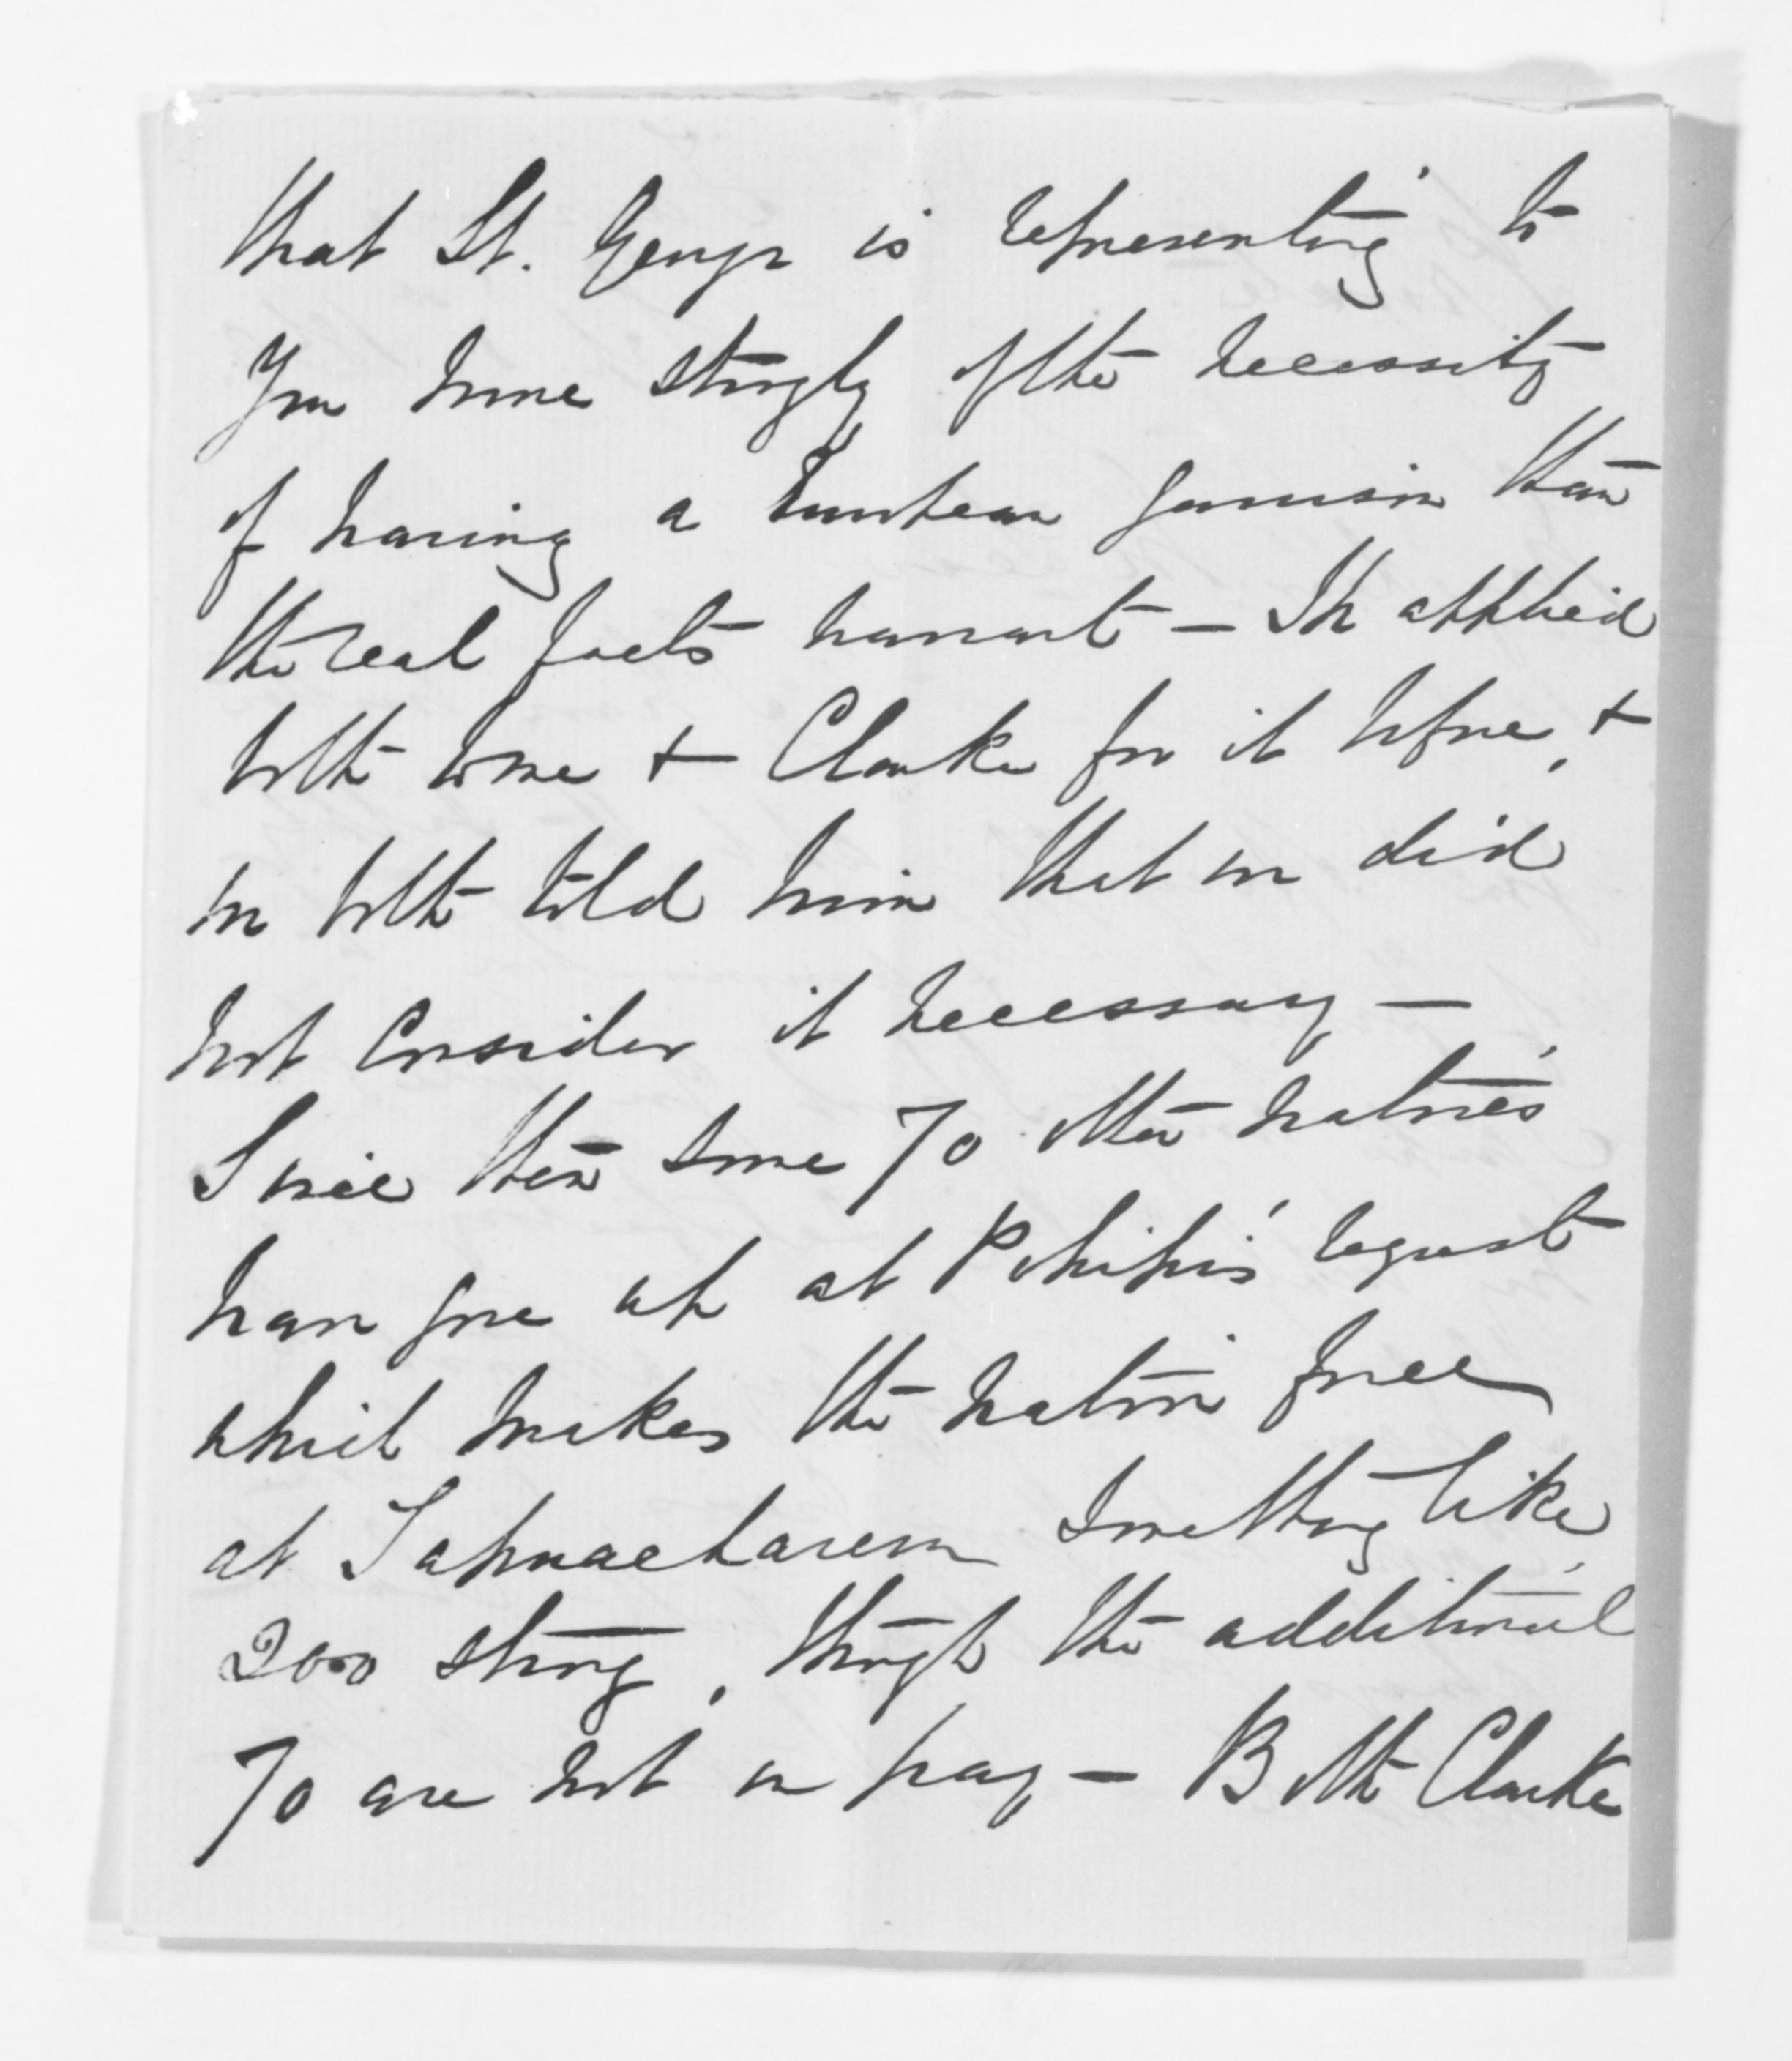 that St. George is representing to
you more strongly of the necessity
of having a European garrison than
the real facts warrant — He applied
both to me & Clarke for it before, &
we both told him that we did
not consider it necessary —
Since then some 70 other natives
have gone up at Pohipi's request
which makes the native force
at Tapuaeharuru something like
200 strong, though the additional
70 are not on pay — Both Clarke